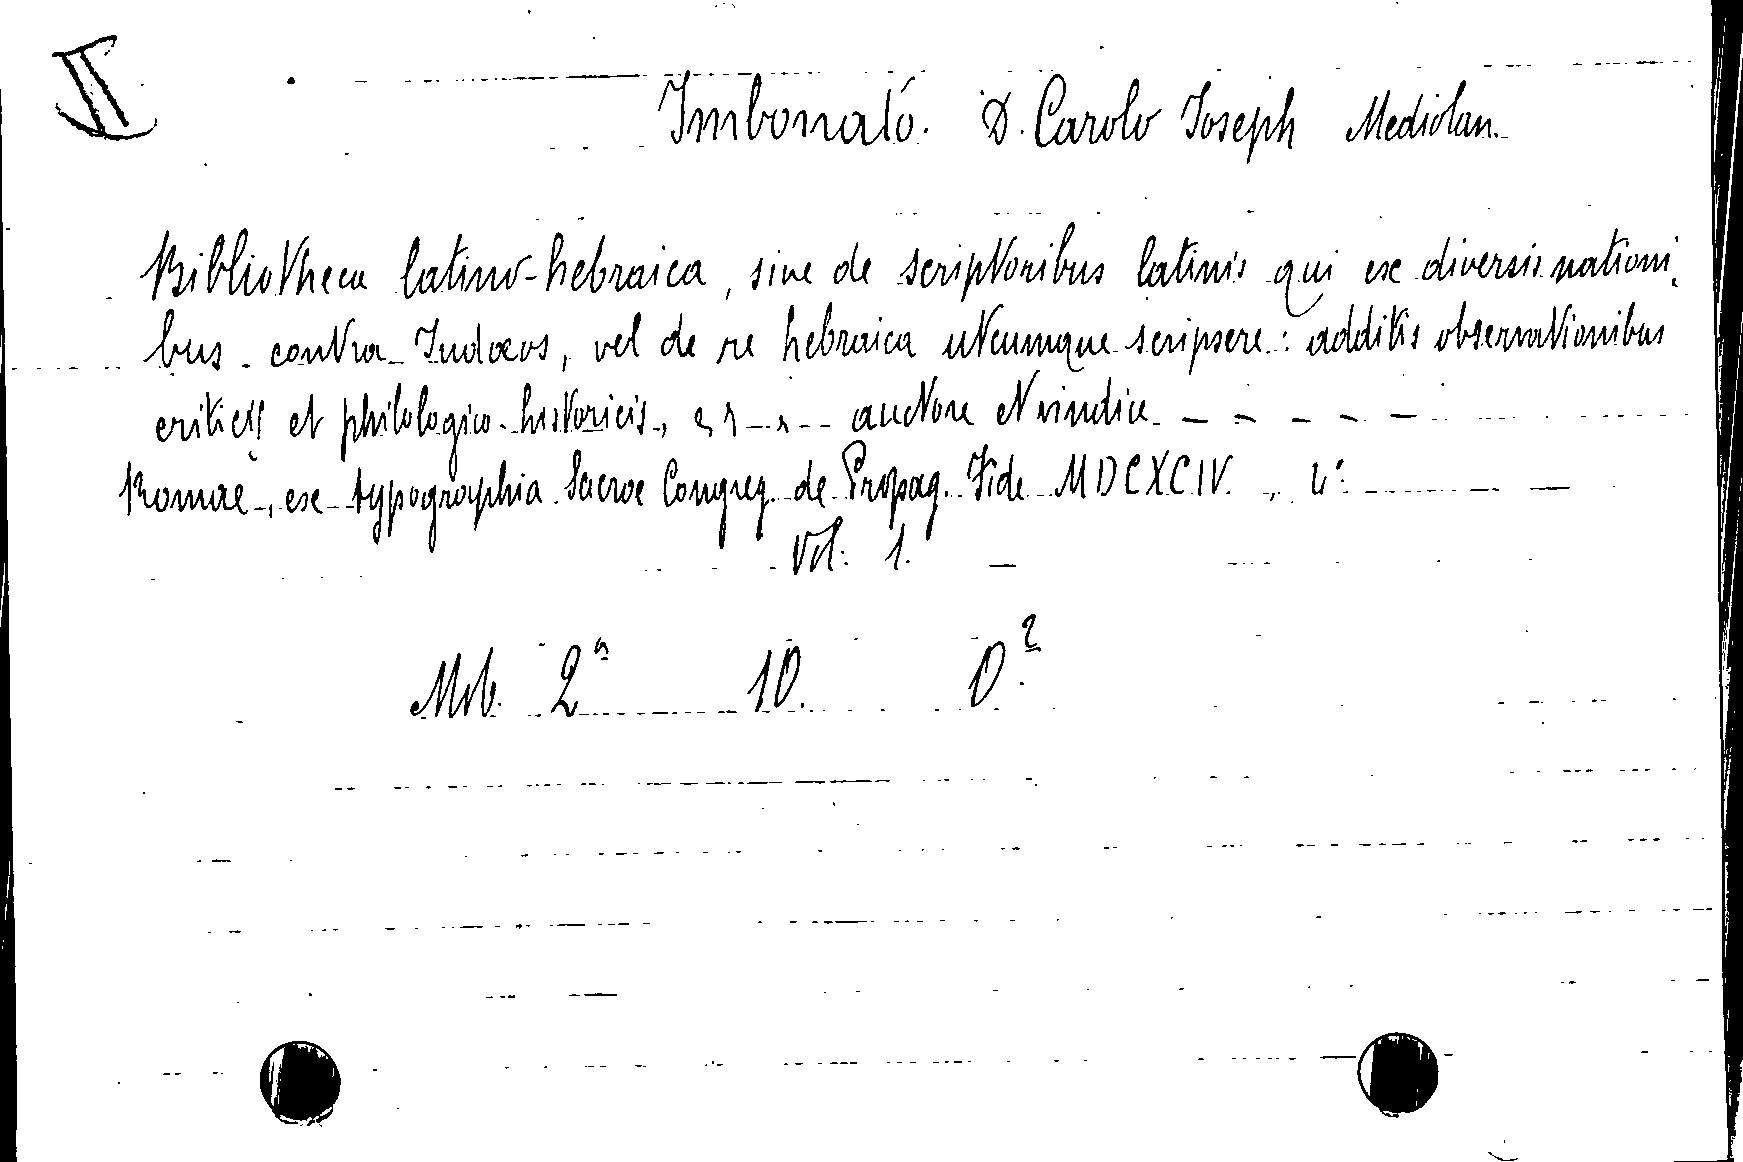 II
Imbonato. D. Carolo Joseph Mediolan.
Bibliotheca latino-hebraica, sive de scriptoribus latinis qui ex diversis nationi
bus contra Judæos, vel de re hebraica utcumque scripsere: additis observationibus
criticis et philologico-historicis, auctore et vindice - - - - -
Romae, ex typographia Sacrae Congreg. de Propag. Fide MDCXCIV. , 4º
Vol: 1.
Mob. 2ª 10. 0?